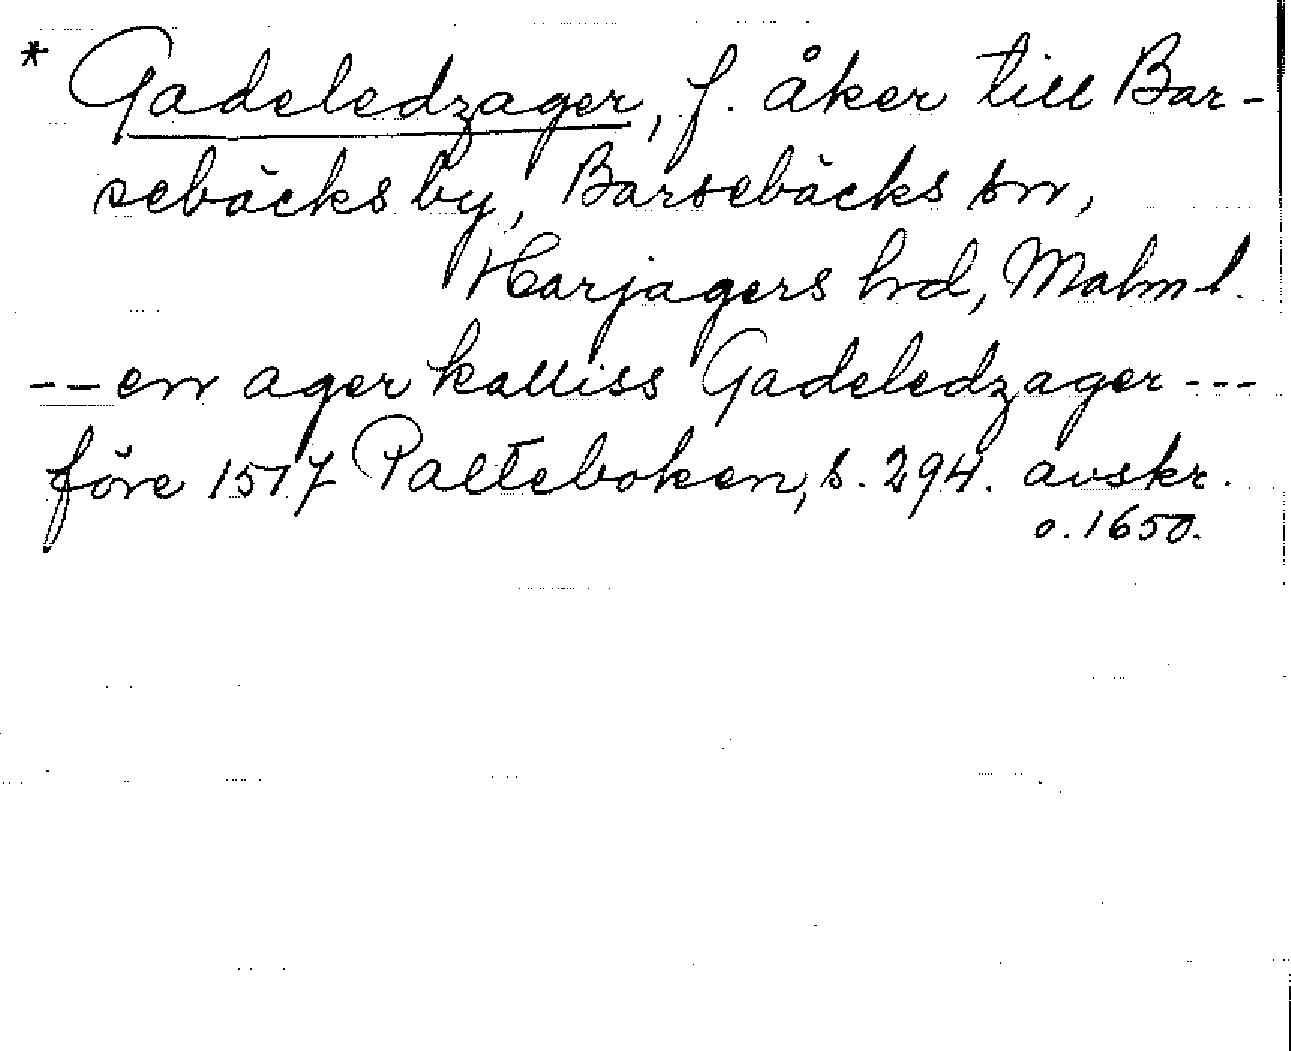 * Gadeledzager, f. åker till Bar-
sebäcks by, Barsebäcks sn,
Harjagers hd, Malm l.
-- en ager kalliss Gadeledzager ---
före 1517 Palteboken, s. 294. avskr.
o. 1650.